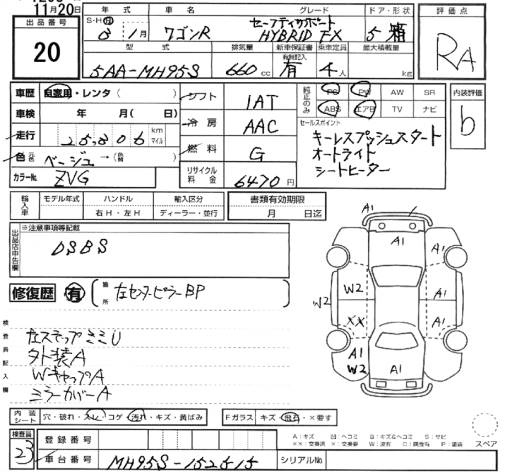 11月20日
出品番号
20
年 式 車 名 グレード ドア・形状
S・H
3 1月 ワゴンR セーフティサポート HYBRID FX 5 箱
型 式 排気量 新車保証書 乗車定員 最大積載量
5AA-MH95S 660 cc 有 4人 kg
評価点
RA
車歴 自家用・レンタ( )
車検 年 月( 日)
走行 25,306 km マイル
色 ベージュ→( )
カラーNo. ZVG
シフト 1AT
冷房 AAC
燃料 G
リサイクル料金 6470円
純正品のみ PS PW AW SR
ABS エアB TV ナビ
セールスポイント
キーレスプッシュスタート
オートライト
シートヒーター
内装評価
b
輸入車 モデル年式 ハンドル 輸入区分
右H・左H ディーラー・並行
書類有効期限
月 日迄
出品店申告欄
※注意事項等記載
DSBS
修復歴 有 箇所 左センターピラーBP
検査員記入欄
左ステップミミU
外装A
WキャップA
ミラーカバーA
A1
A1
A1
W2
W2
A1
A1
XX
A1
A1
W2
A1
内装シート 穴・破れ・スレ・コゲ 汚れ・キズ・黄ばみ
Fガラス キズ・飛石・×要す
検査員
23
登録番号
車台番号 MH95S-152515
シリアルNo.
スペア